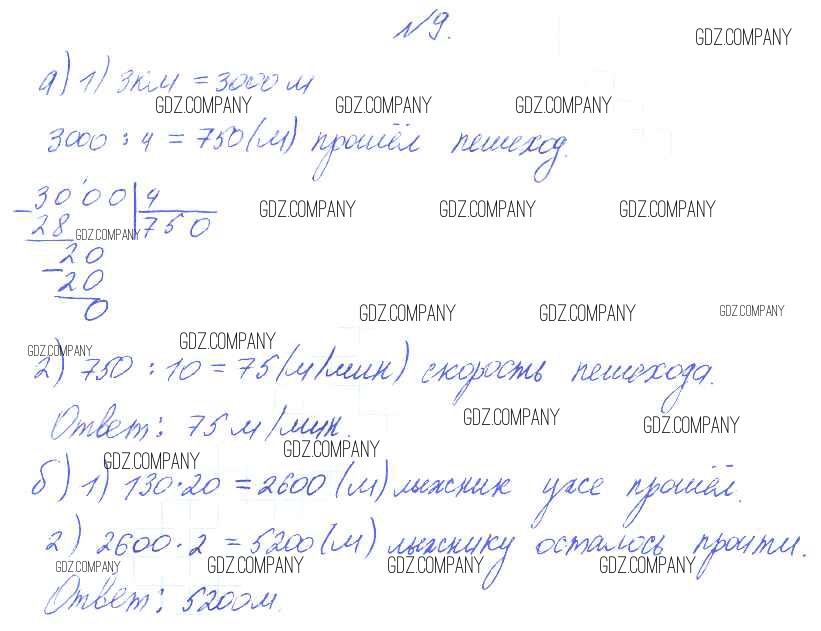 №9.
GDZ.COMPANY
а) 1) 3км = 3000м
GDZ.COMPANY GDZ.COMPANY GDZ.COMPANY
3000 : 4 = 750 (м) прошёл пешеход.
3000 | 4
GDZ.COMPANY GDZ.COMPANY GDZ.COMPANY
− 28 | 750
GDZ.COMPANY
20
− 20
0
GDZ.COMPANY GDZ.COMPANY GDZ.COMPANY
GDZ.COMPANY GDZ.COMPANY
2) 750 : 10 = 75 (м/мин) скорость пешехода.
GDZ.COMPANY GDZ.COMPANY
Ответ: 75 м/мин.
GDZ.COMPANY GDZ.COMPANY
б) 1) 130·20 = 2600 (м) лыжник уже прошёл.
2) 2600·2 = 5200 (м) лыжнику осталось пройти.
GDZ.COMPANY GDZ.COMPANY GDZ.COMPANY GDZ.COMPANY
Ответ: 5200м.